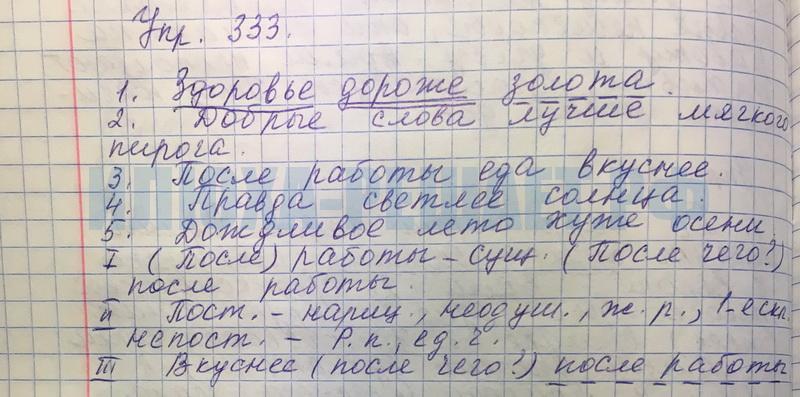 Упр. 333.
1. Здоровье дороже золота.
2. Добрые слова лучше мягкого
пирога.
3. После работы еда вкуснее.
4. Правда светлее солнца.
5. Дождливое лето хуже осени.
I (После) работы - сущ. (После чего?)
после работы.
II Пост. - нариц., неодуш., ж. р., 1-е скл.
непост. - Р. п., ед. ч.
III Вкуснее (после чего?) после работы